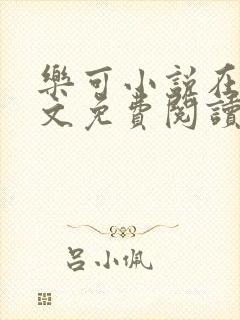 樂可小說在
文免費閱讀
呂小佩